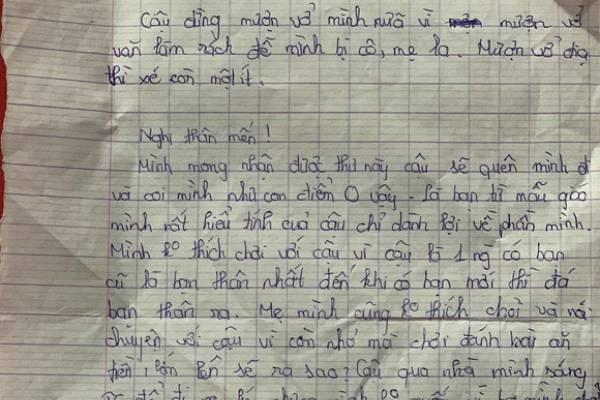 Cậu đừng mượn vở mình nữa vì mượn vở
văn làm rách để mình bị cô, mẹ la. Mượn vở địa
thì xé còn một ít.
Nghi thân mến!
Mình mong nhận được thư này cậu sẽ quên mình đi
và coi mình như con điểm 0 vậy. Là bạn từ mẫu giáo
mình rất hiểu tính của cậu chỉ dành lợi về phần mình.
Mình ko thích chơi với cậu vì cậu là 1 ng có bạn
cũ là bạn thân nhất đến khi có bạn mới thì đá
bạn thân ra. Mẹ mình cũng ko thích chơi và nói
chuyện với cậu vì còn nhỏ mà chơi đánh bài ăn
tiền, lớn lên sẽ ra sao? Cậu qua nhà mình